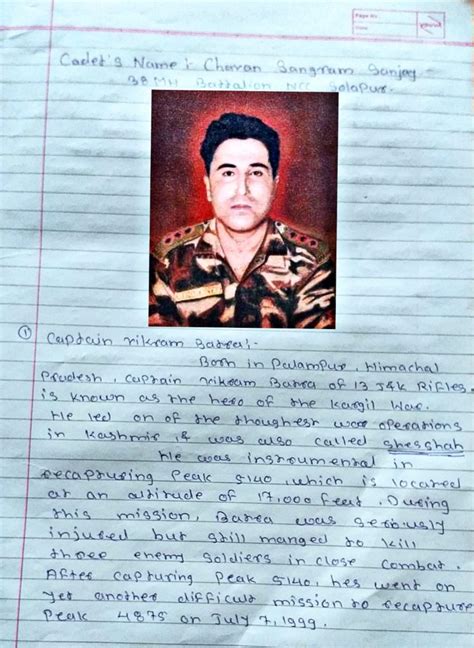 Page No.
Date
Cadet's Name :- Chavan Sangram Sanjay
38 MH Battalion NCC Solapur.
① Captain Vikram Batra :-
Born in Palampur, Himachal
Pradesh, Captain Vikram Batra of 13 J&K Rifles
is known as the hero of the Kargil War.
He led on of the thoughest war operations
in Kashmir, & was also called Shesshah
He was instrumental in
recapturing Peak 5140, which is located
at an altitude of 17,000 feet. During
this mission, Batra was seriously
injured but still manged to kill
three enemy soldiers in close combat.
After capturing Peak 5140, hes went on
yet another difficult mission to recapture
Peak 4875 on July 7, 1999.